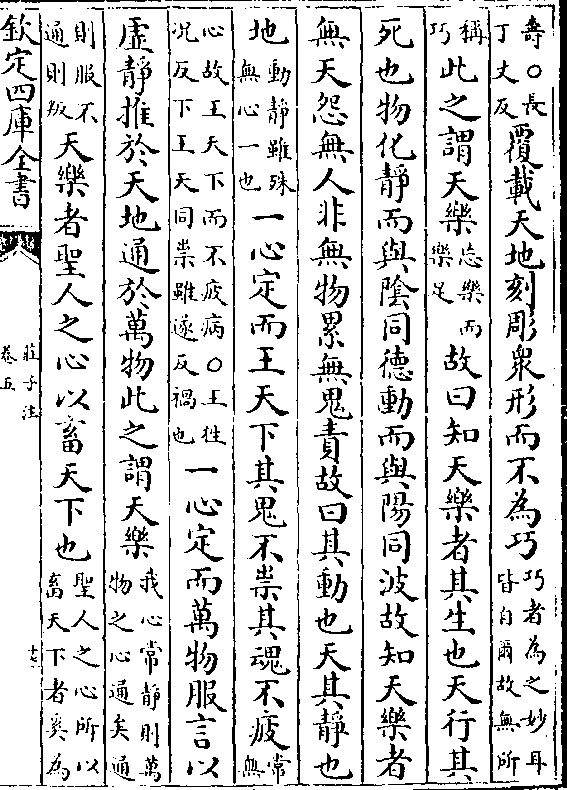 壽○長丁丈反覆載天地刻彫衆形而不為巧巧者為之妙耳皆自爾故無所
稱巧此之謂天樂忘樂而樂足故曰知天樂者其生也天行其
死也物化靜而與陰同德動而與陽同波故知天樂者
無天怨無人非無物累無鬼責故曰其動也天其靜也
地動靜雖殊無心一也一心定而王天下其鬼不祟其魂不疲常無
心故王天下而不疲病○王往況反下王天同祟雖遂反禍也一心定而萬物服言以
虛靜推於天地通於萬物此之謂天樂我心常靜則萬物之心通矣通
則服不通則叛天樂者聖人之心以畜天下也聖人之心所以畜天下者奚為
欽定四庫全書
莊子注
卷五